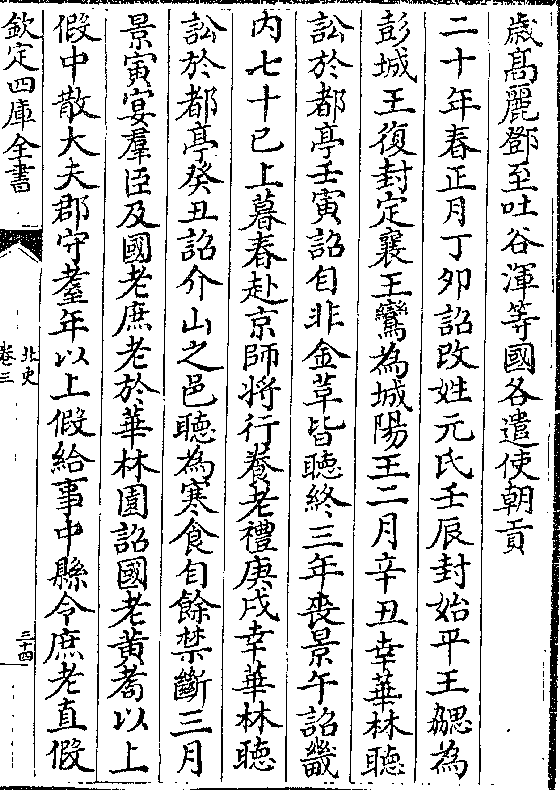 歲髙麗鄧至吐谷渾等國各遣使朝貢
二十年春正月丁卯詔改姓元氏壬辰封始平王勰為
彭城王復封定襄王鸞為城陽王二月辛丑幸華林聽
訟於都亭壬寅詔自非金革皆聽終三年喪景午詔畿
内七十已上暮春赴京師將行養老禮庚戌幸華林聽
訟於都亭癸丑詔介山之邑聽為寒食自餘禁斷三月
景寅宴羣臣及國老庶老於華林園詔國老黃耇以上
假中散大夫郡守耋年以上假給事中縣令庶老直假
欽定四庫全書
北史
卷三
三十四